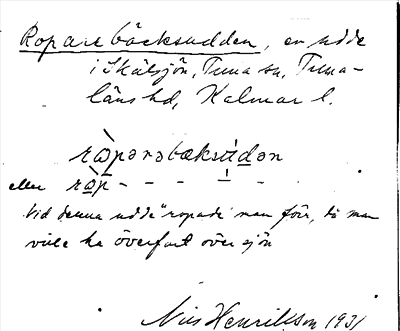 Roparebäcksudden, en udde
i Skälsjön, Tuna sn, Tuna-
läns hd, Kalmar l.
rɷ̀pərəbæksúdən
eller rɷ̀p - - - - ı́ -
Vid denna udde "ropade" man förr, då man
ville ha överfart över sjön
Nils Henriksson 1931